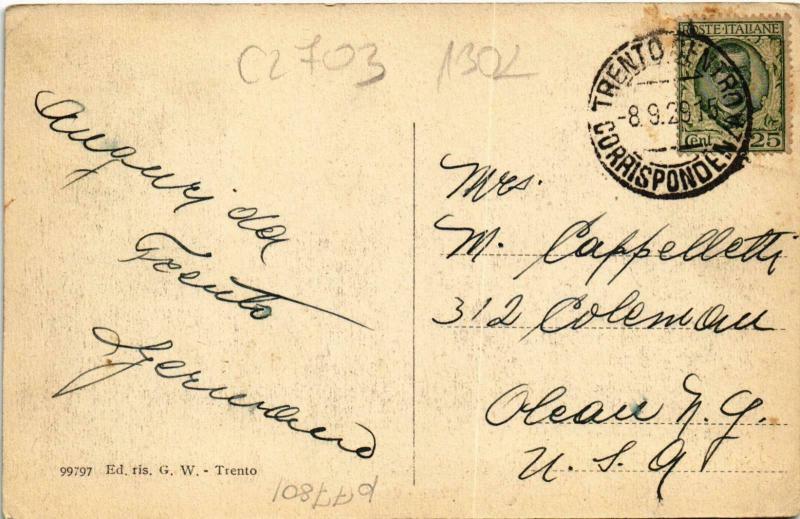 C2703 1302
POSTE·ITALIANE
TRENTO CENTRO
-8.9.29.15
CORRISPONDENZA
Cent. 25
Auguri da
Trento
Germano
Mrs.
M. Cappelletti
312 Coleman
Olean N.Y.
U.S.A
99797 Ed. ris. G. W. - Trento